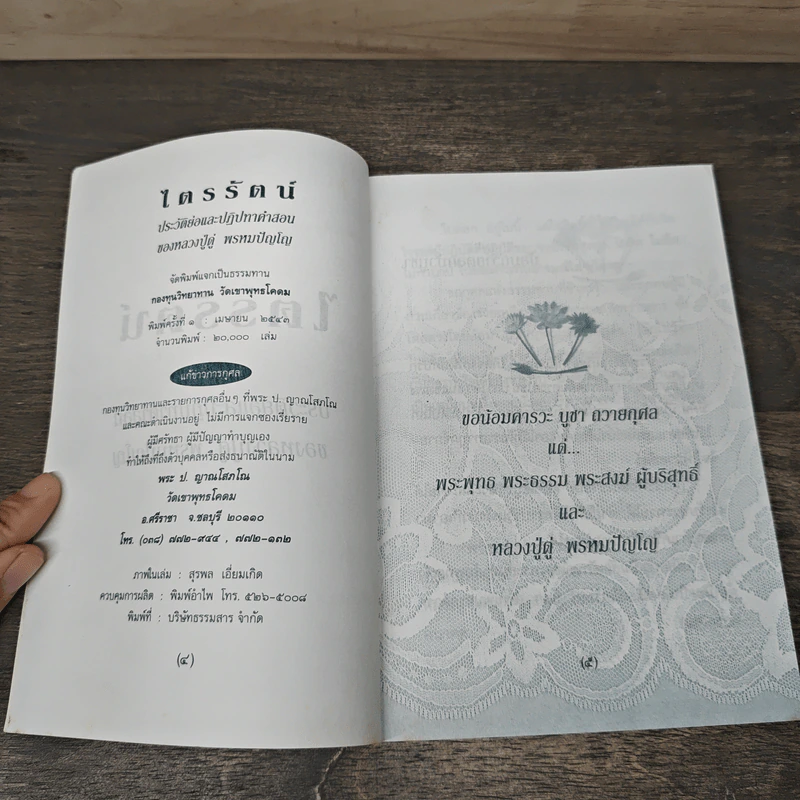 ไตรรัตน์
ประวัติย่อและปฏิปทาคำสอน
ของหลวงปู่ดู่ พรหมปัญโญ
จัดพิมพ์แจกเป็นธรรมทาน
กองทุนวิทยาทาน วัดเขาพุทธโคดม
พิมพ์ครั้งที่ ๑ เมษายน ๒๕๔๓
จำนวนพิมพ์ : ๒๐,๐๐๐ เล่ม
แก้ข่าวการกุศล
กองทุนวิทยาทานและรายการกุศลอื่นๆ ที่พระ ป. ญาณโสภโณ
และคณะดำเนินงานอยู่ ไม่มีการแจกซองเรี่ยราย
ผู้มีศรัทธา ผู้มีปัญญาทำบุญเอง
ทำให้ถึงที่ถึงตัวบุคคลหรือส่งธนาณัติในนาม
พระ ป. ญาณโสภโณ
วัดเขาพุทธโคดม
อ.ศรีราชา จ.ชลบุรี ๒๐๑๑๐
โทร. (๐๓๘) ๗๗๒-๙๔๔ , ๗๗๒-๑๓๒
ภาพในเล่ม : สุรพล เอี่ยมเกิด
ควบคุมการผลิต : พิมพ์อำไพ โทร. ๕๒๖-๕๐๐๘
พิมพ์ที่ : บริษัทธรรมสาร จำกัด
(๔)
ขอน้อมคารวะ บูชา ถวายกุศล
แด่...
พระพุทธ พระธรรม พระสงฆ์ ผู้บริสุทธิ์
และ
หลวงปู่ดู่ พรหมปัญโญ
(๕)